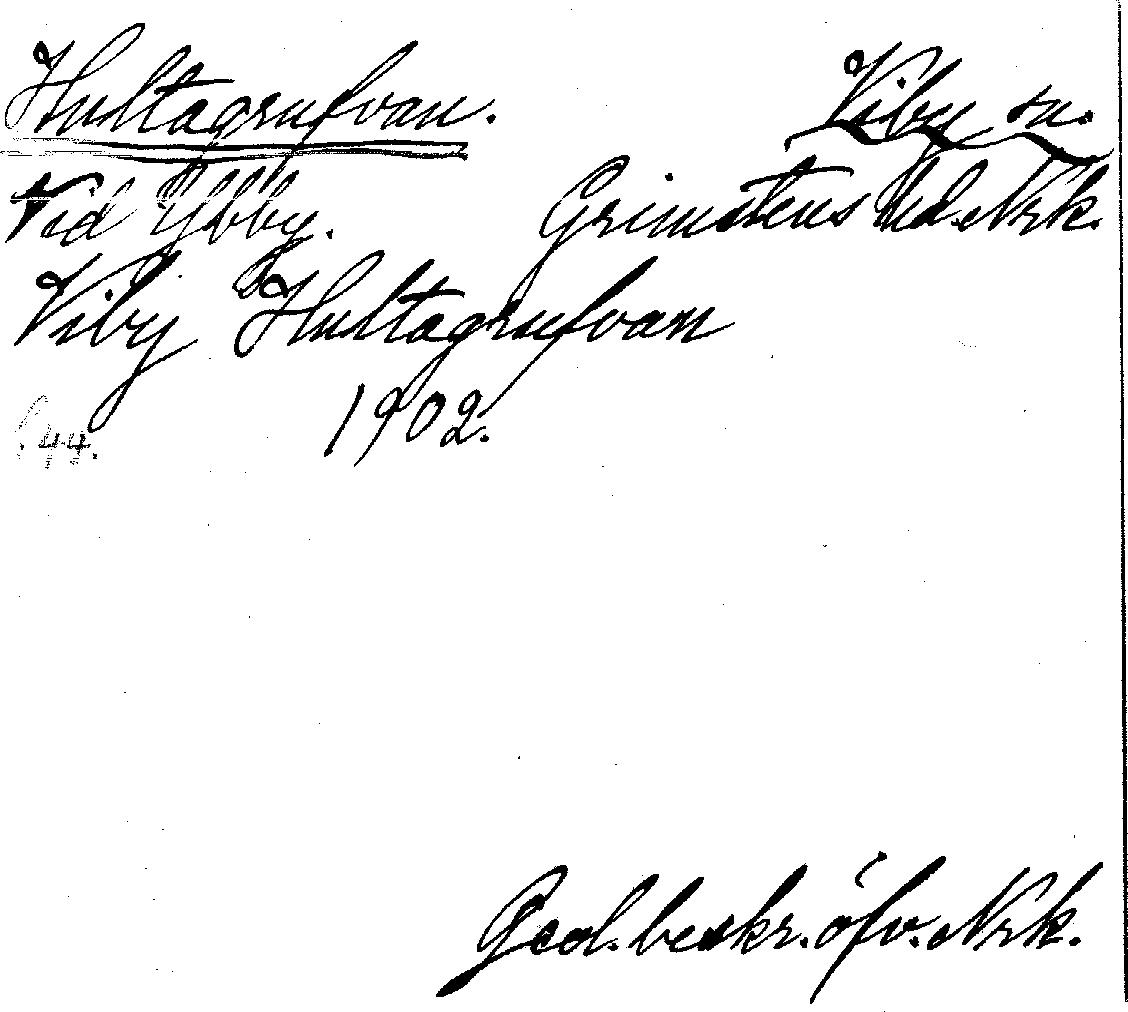 Hultagrufvan. Viby sn.
Vid Ybby. Grimstens hd. Nrk.
Viby Hultagrufvan
1902.
44.
Geol. beskr. öfv. Nrk.